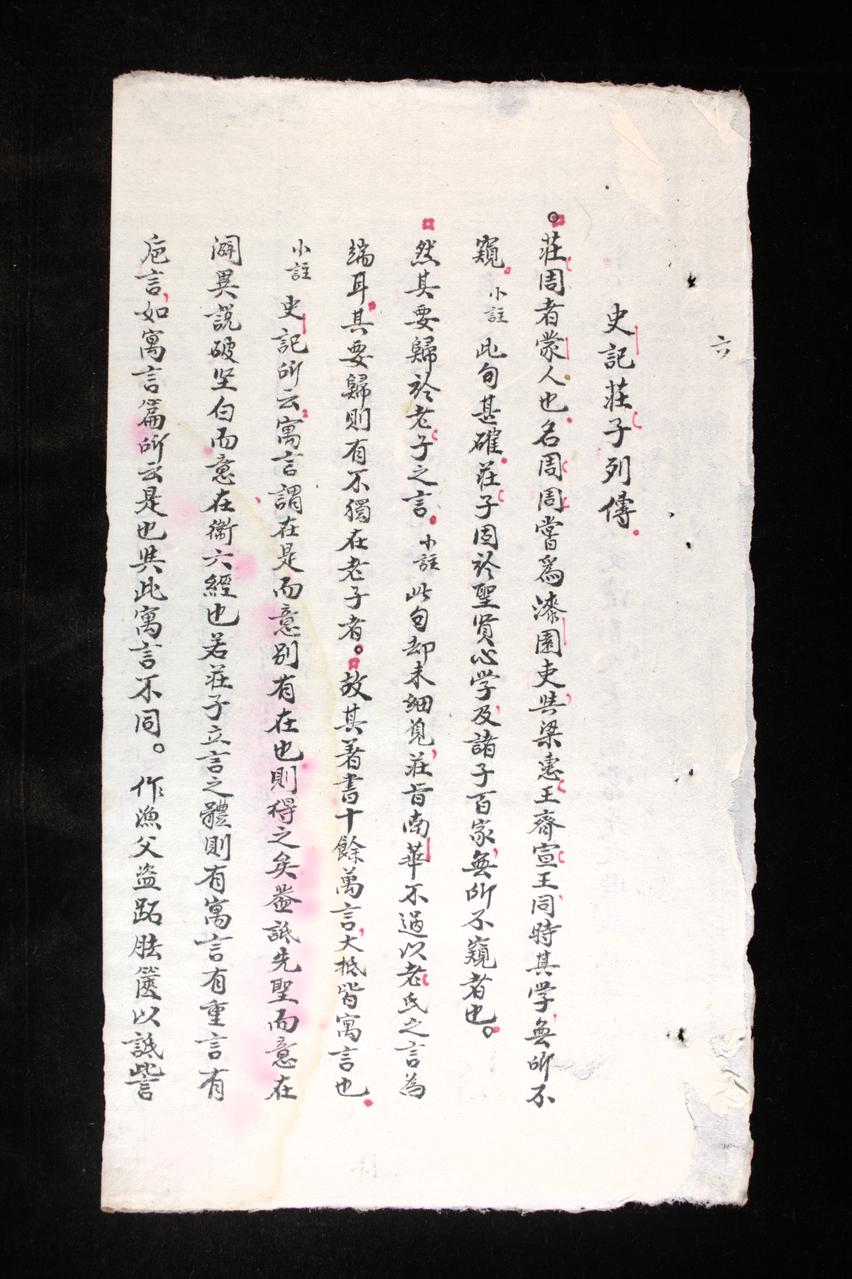 六
史記莊子列傳。
莊周者蒙人也。名周周嘗爲漆園吏，與梁惠王齊宣王同時其学，無所不
窺。小註此句甚確。莊子固於聖贤心学，及諸子百家，無所不窺者也。
然其要歸於老子之言。小註此句却未細覓，莊旨南華不過以老氏之言為
端耳。其要歸則有不獨在老子者。故其著書十餘萬言，大抵皆寓言也。
小註史記所云寓言謂在是而意别有在也則得之矣。盖詆先聖而意在
闢異説破坚白而意在衛六經也若莊子立言之體則有寓言有重言有
巵言，如寓言篇所云是也與此寓言不同。作漁父盗跖胠篋以詆訾